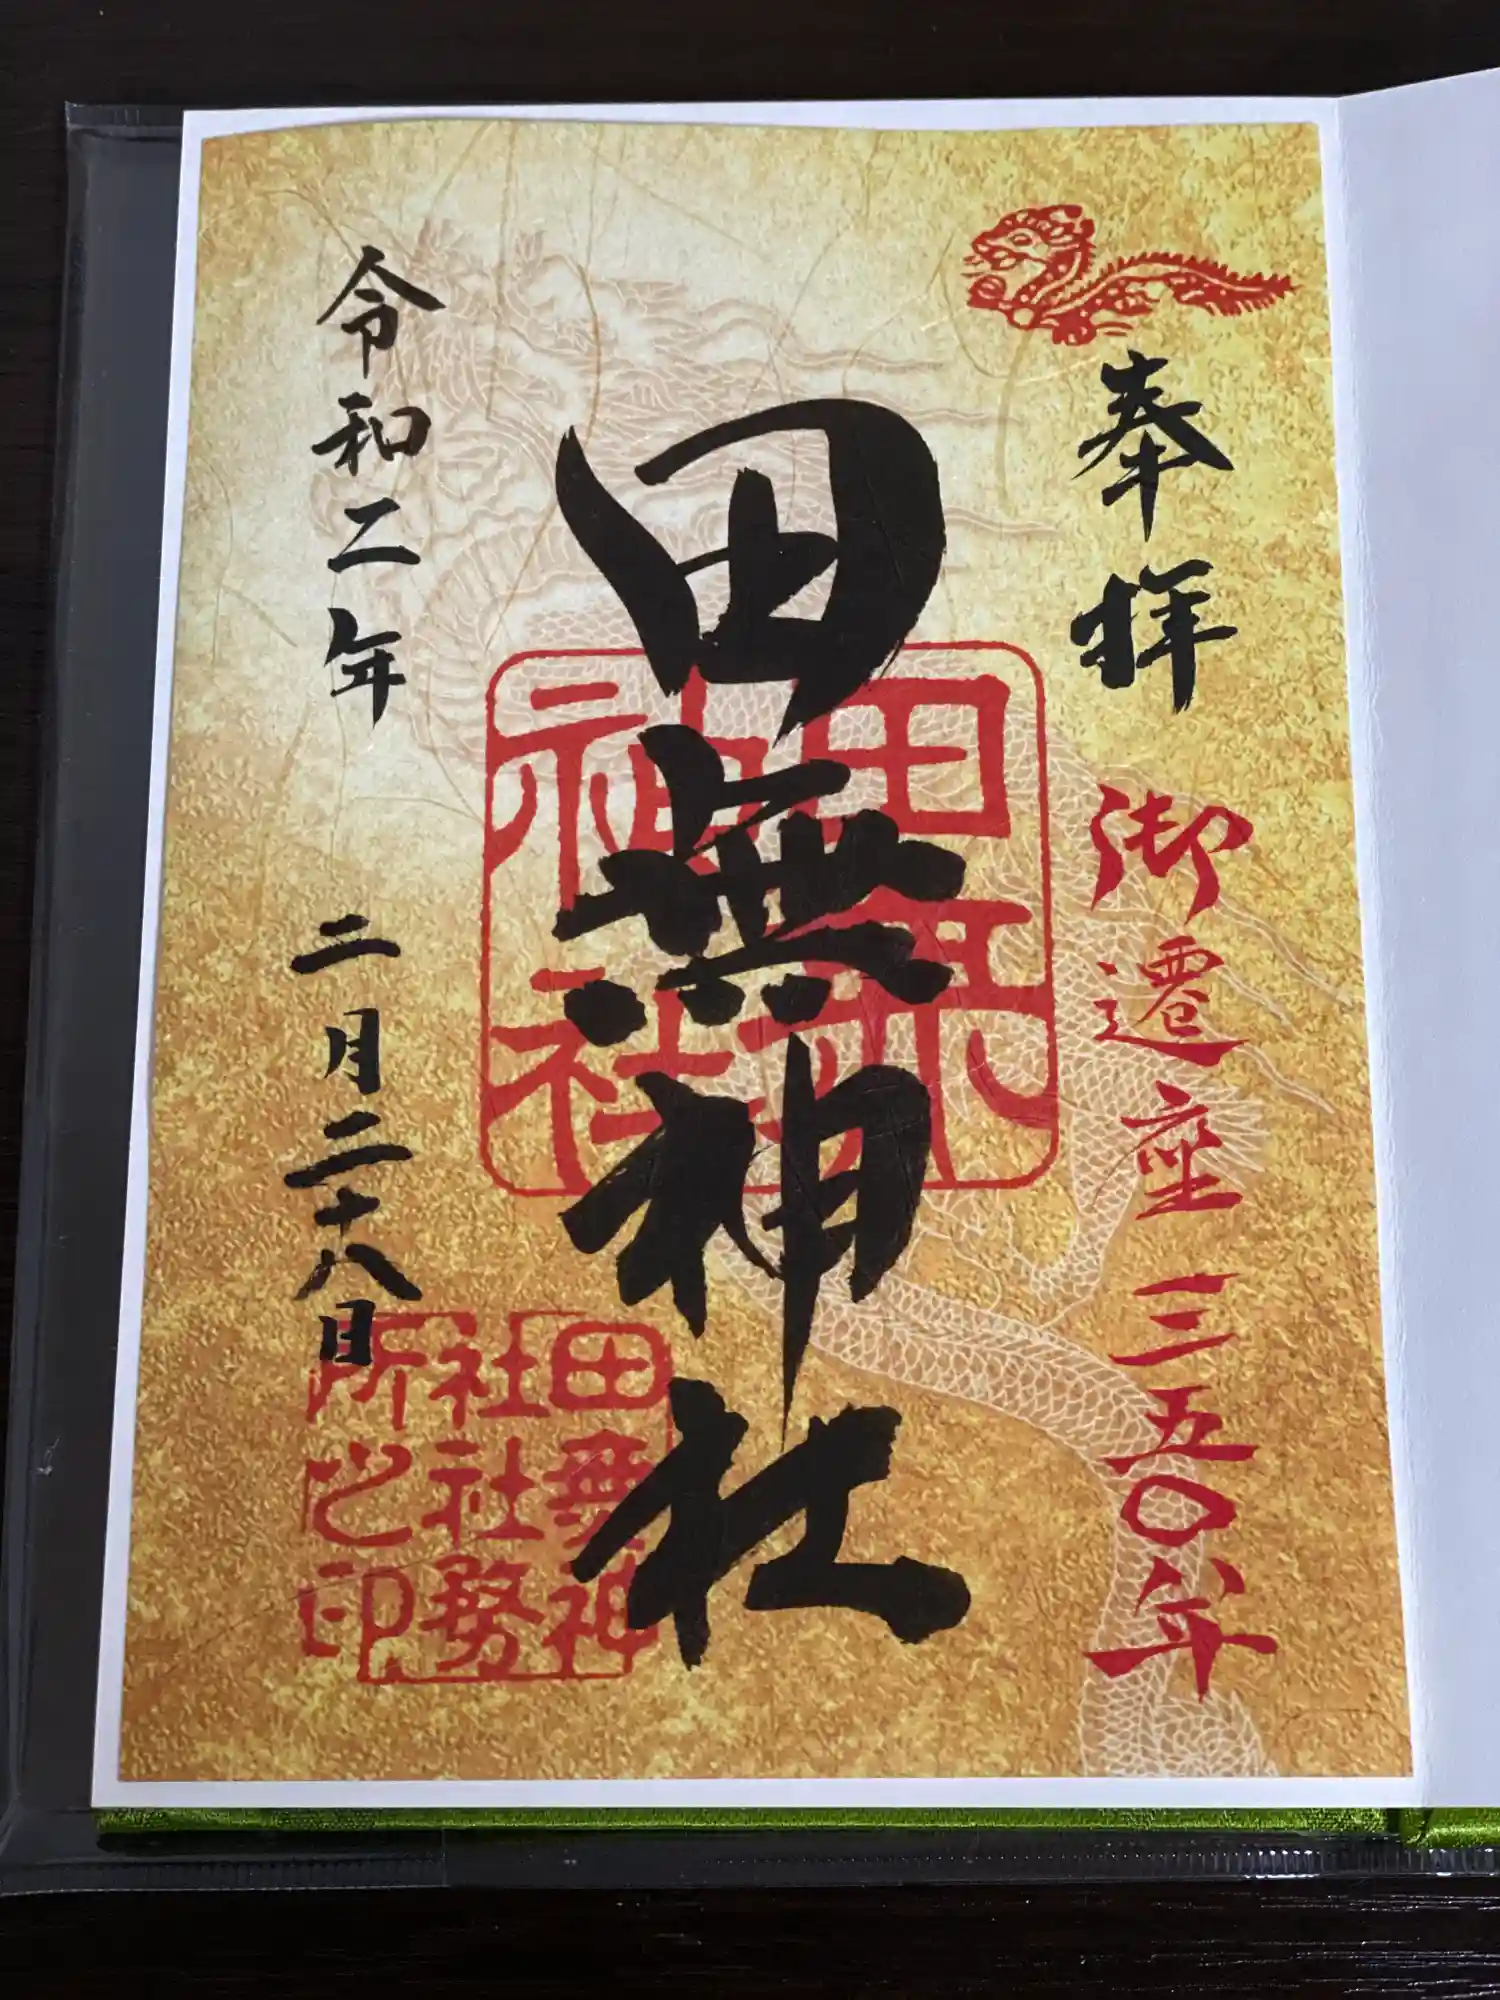 奉拝
御遷座三五〇年
田無神社
令和二年
二月二十八日
田無
神社
田無神
社社務
所之印